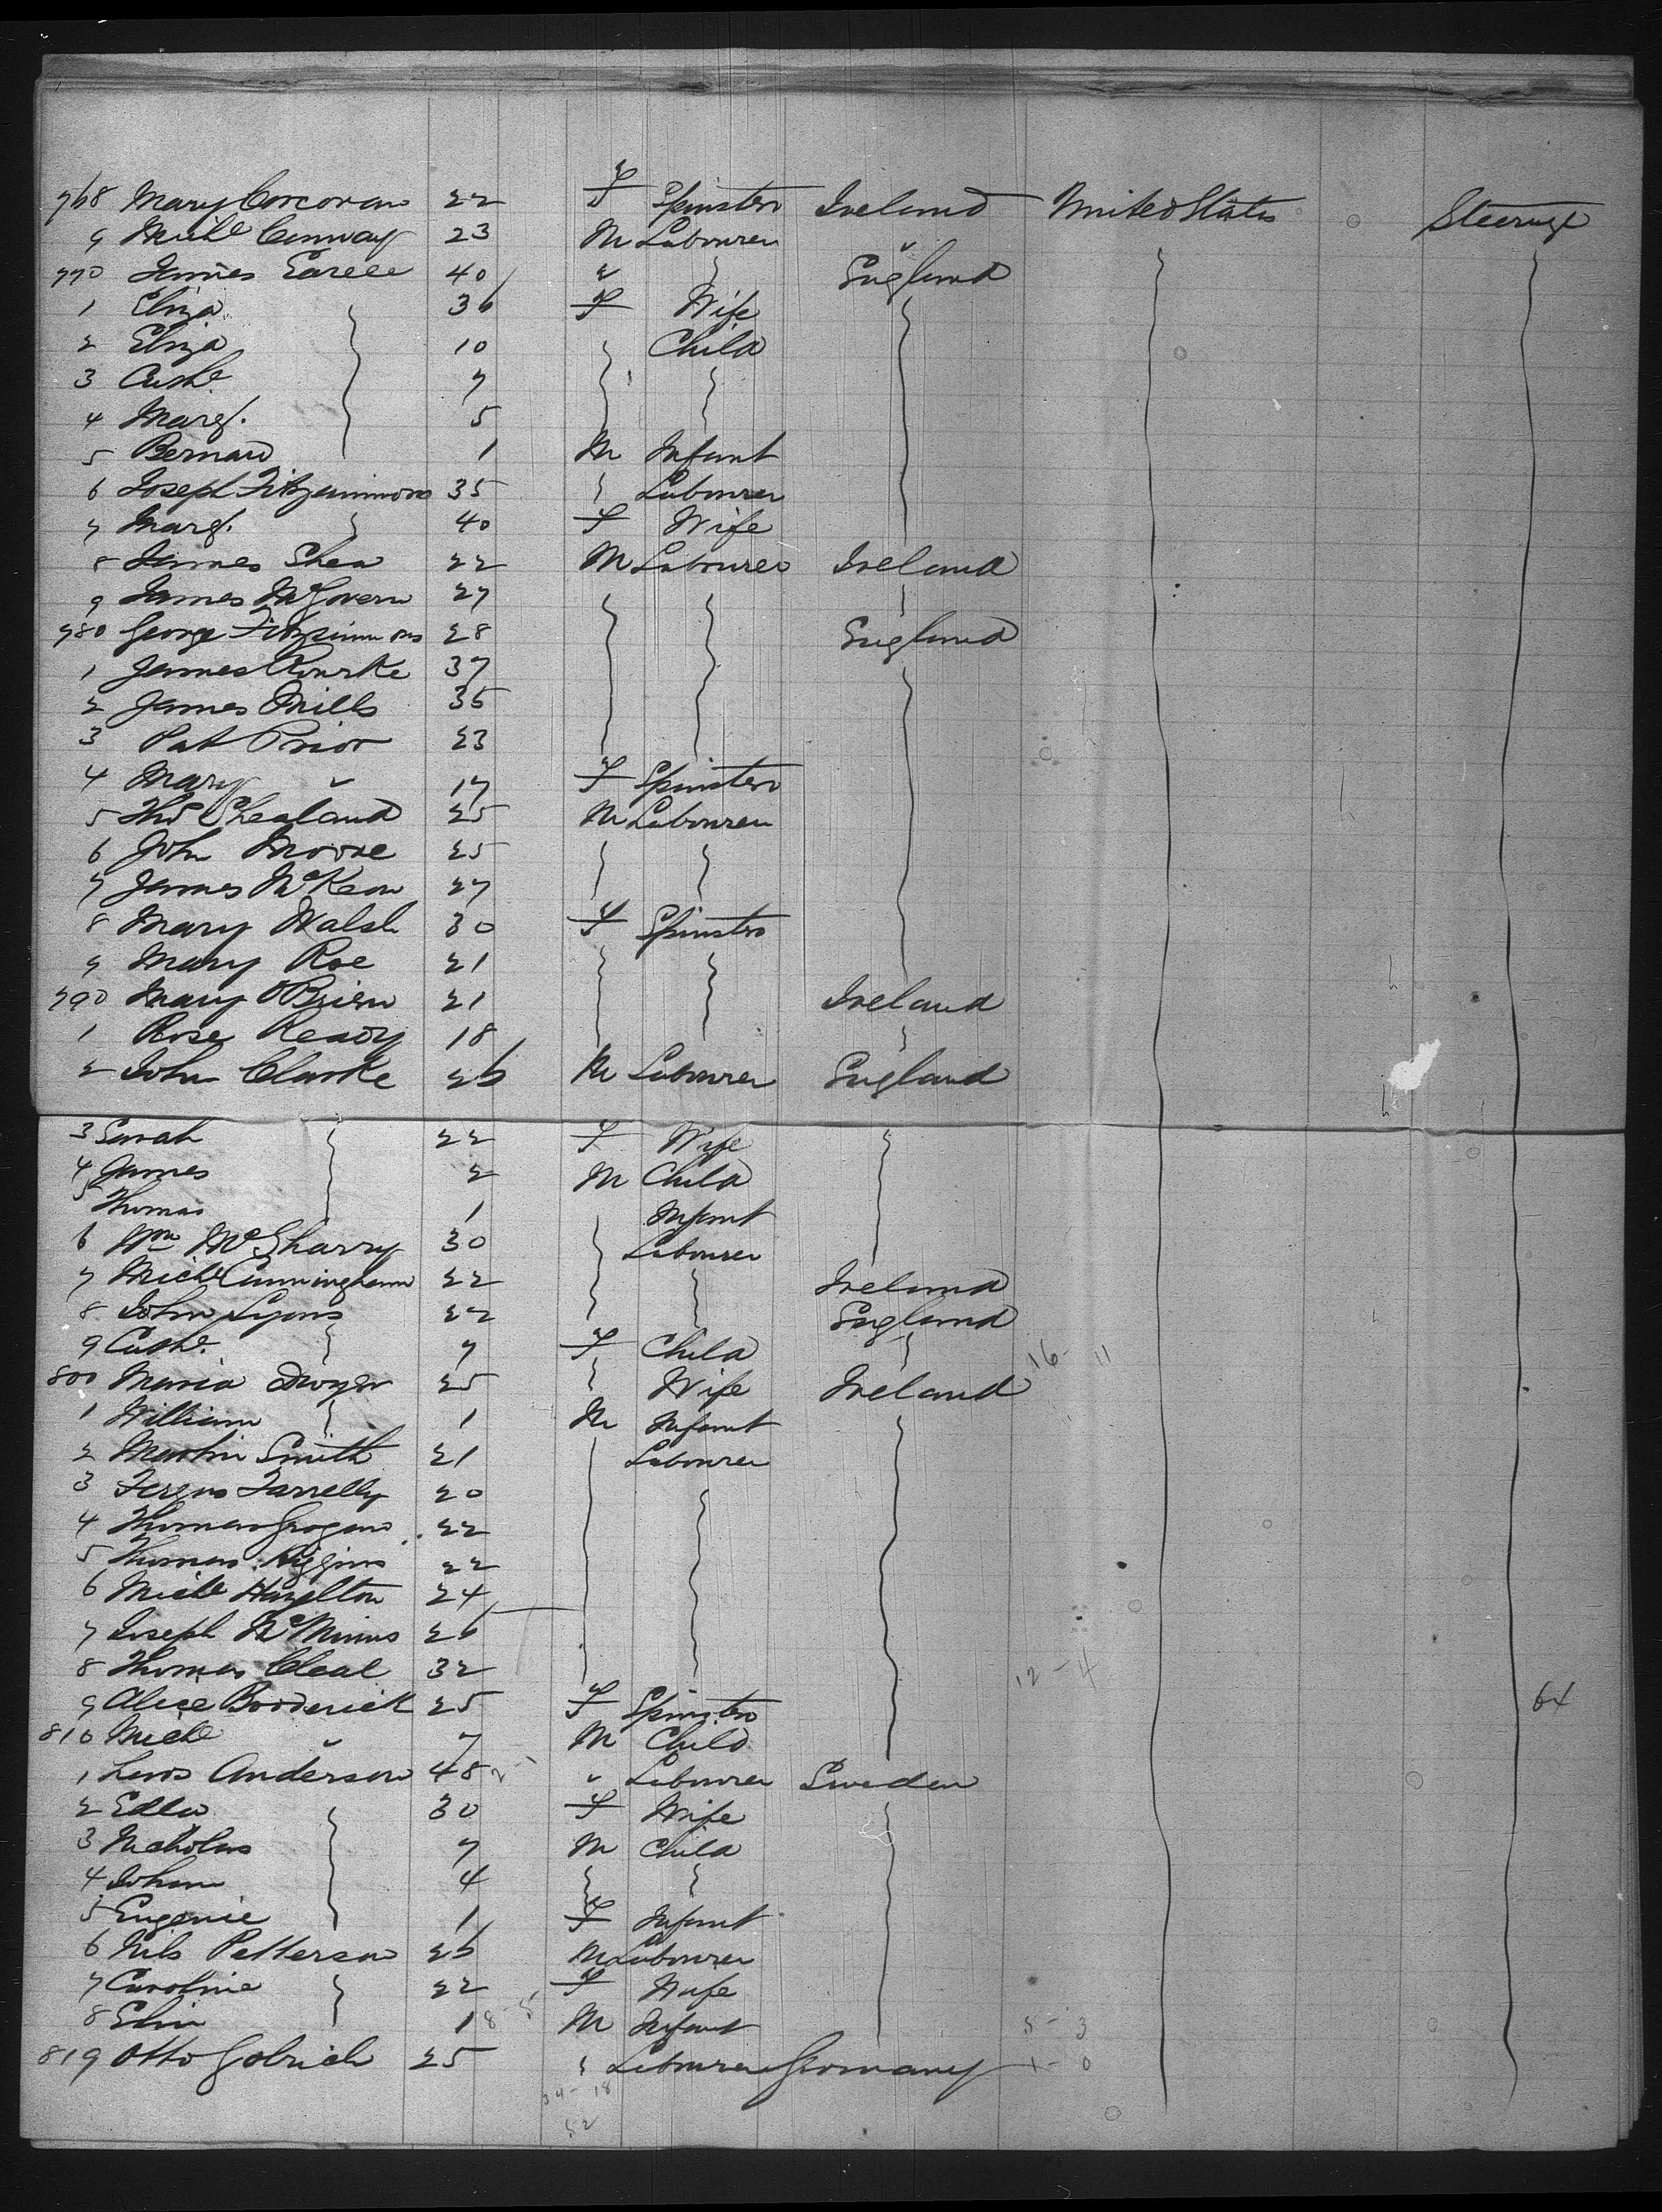 768 Mary Corcoran 22 F Spinster Ireland United States Steerage
9 Michl Conway 23 M Labourer "
770 James Earlee 40 " England
1 Eliza 36 F Wife
2 Eliza 10 Child
3 Cathe 7
4 Margt. 5
5 Bernard 1 M Infant
6 Joseph Fitzsimmons 35 Labourer
7 Margt. 40 F Wife
8 James Shea 22 M Labourer Ireland
9 James McGovern 27
780 George Fitzsimmons 28 England
1 James Rourke 37
2 James Mills 35
3 Pat Prior 23
4 Mary " 17 F Spinster
5 Thos Shealand 25 M Labourer
6 John Moore 25
7 James McKeon 27
8 Mary Walsh 30 F Spinster
9 Mary Roe 21
790 Mary OBrien 21 Ireland
1 Rose Ready 18
2 John Clarke 26 M Labourer England
3 Sarah 22 F Wife
4 James 2 M Child
5 Thomas 1 Infant
6 Wm McSharry 30 Labourer
7 Michl Cunningham 22 Ireland
8 John Lyons 22 England
9 Cathe. 7 F Child
16- 11
800 Maria Dwyer 25 Wife Ireland
1 William 1 M Infant
2 Martin Smith 21 Labourer
3 Fergus Farrelly 20
4 Thomas Grogan 22
5 Thomas Higgins 22
6 Michl Hazelton 24
7 Joseph McMinus 26
8 Thomas Cleal 32
12 - 4
9 Alice Broderick 25 F Spinster 64
810 Michl " 7 M Child
1 Lars Anderson 48 " Labourer Sweden
2 Edla 30 F Wife
3 Nicholas 7 M Child
4 Johan 4
5 Eugenie 1 F Infant
6 Nils Petterson 26 M Labourer
7 Caroline 22 F Wife
8 Elin 1 M Infant
18-5
5 - 3
819 Otto Gobrich 25 Labourer Germany 1 - 0
34 - 18
52